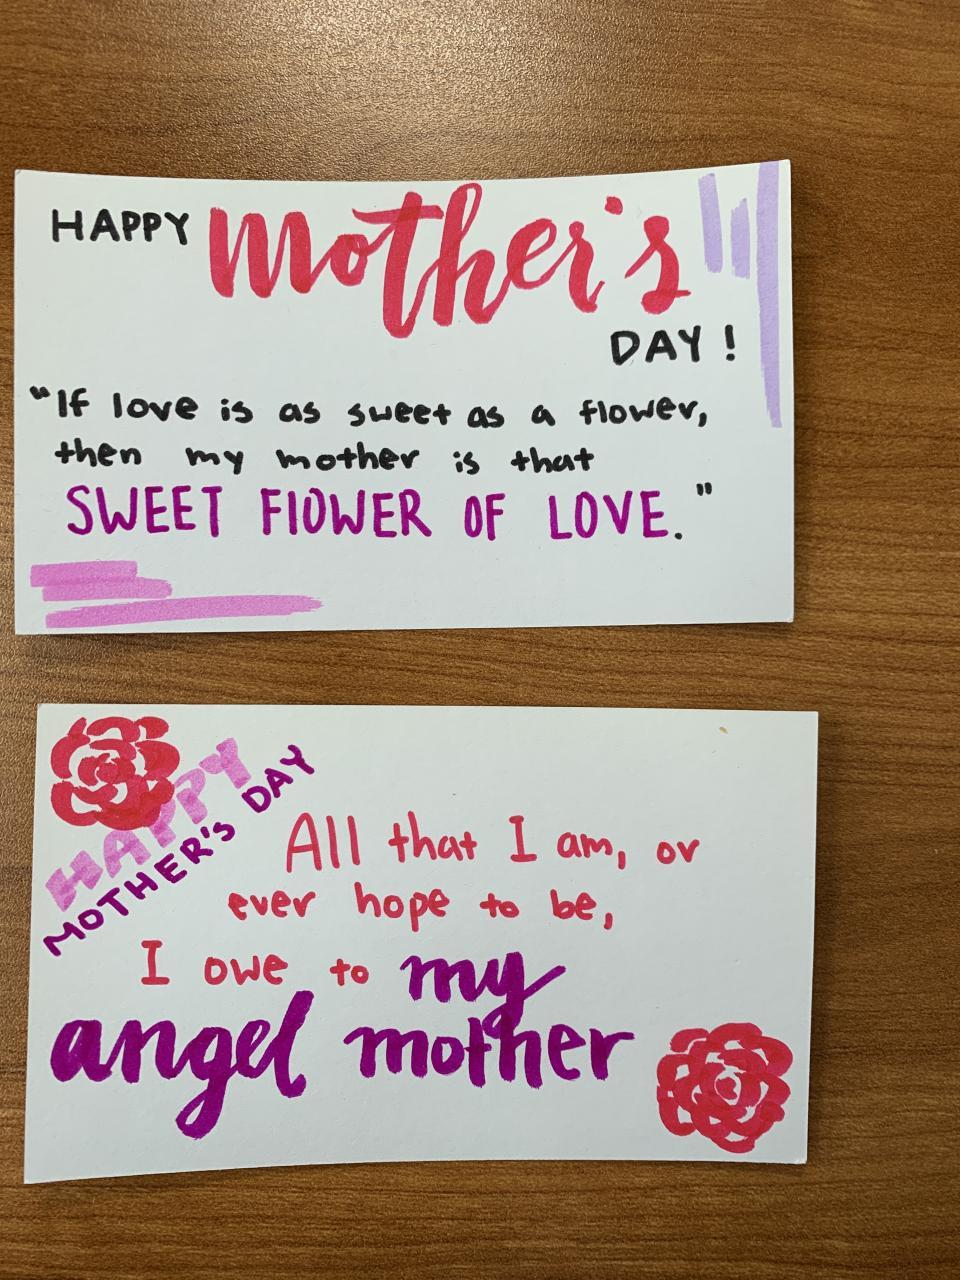 HAPPY mother's
DAY!
"If love is as sweet as a flower,
then my mother is that
SWEET FlOWER OF LOVE."
HAPPY
MOTHER'S DAY
All that I am, or
ever hope to be,
I owe to my
angel mother